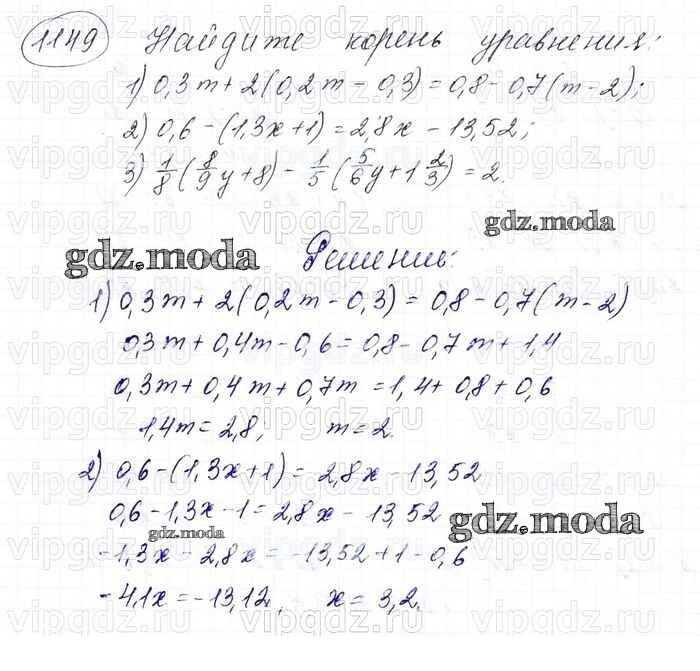 1149 Найдите корень уравнения:
1) 0,3m + 2(0,2m - 0,3) = 0,8 - 0,7(m - 2);
2) 0,6 - (1,3x + 1) = 2,8x - 13,52;
3) 1/8 (8/9 y + 8) - 1/5 (5/6 y + 1 2/3) = 2.
gdz.moda
gdz.moda Решение:
1) 0,3m + 2(0,2m - 0,3) = 0,8 - 0,7(m - 2)
0,3m + 0,4m - 0,6 = 0,8 - 0,7m + 1,4
0,3m + 0,4m + 0,7m = 1,4 + 0,8 + 0,6
1,4m = 2,8, m = 2.
2) 0,6 - (1,3x + 1) = 2,8x - 13,52
0,6 - 1,3x - 1 = 2,8x - 13,52
gdz.moda gdz.moda
-1,3x - 2,8x = -13,52 + 1 - 0,6
-4,1x = -13,12, x = 3,2.
vipgdz.ru